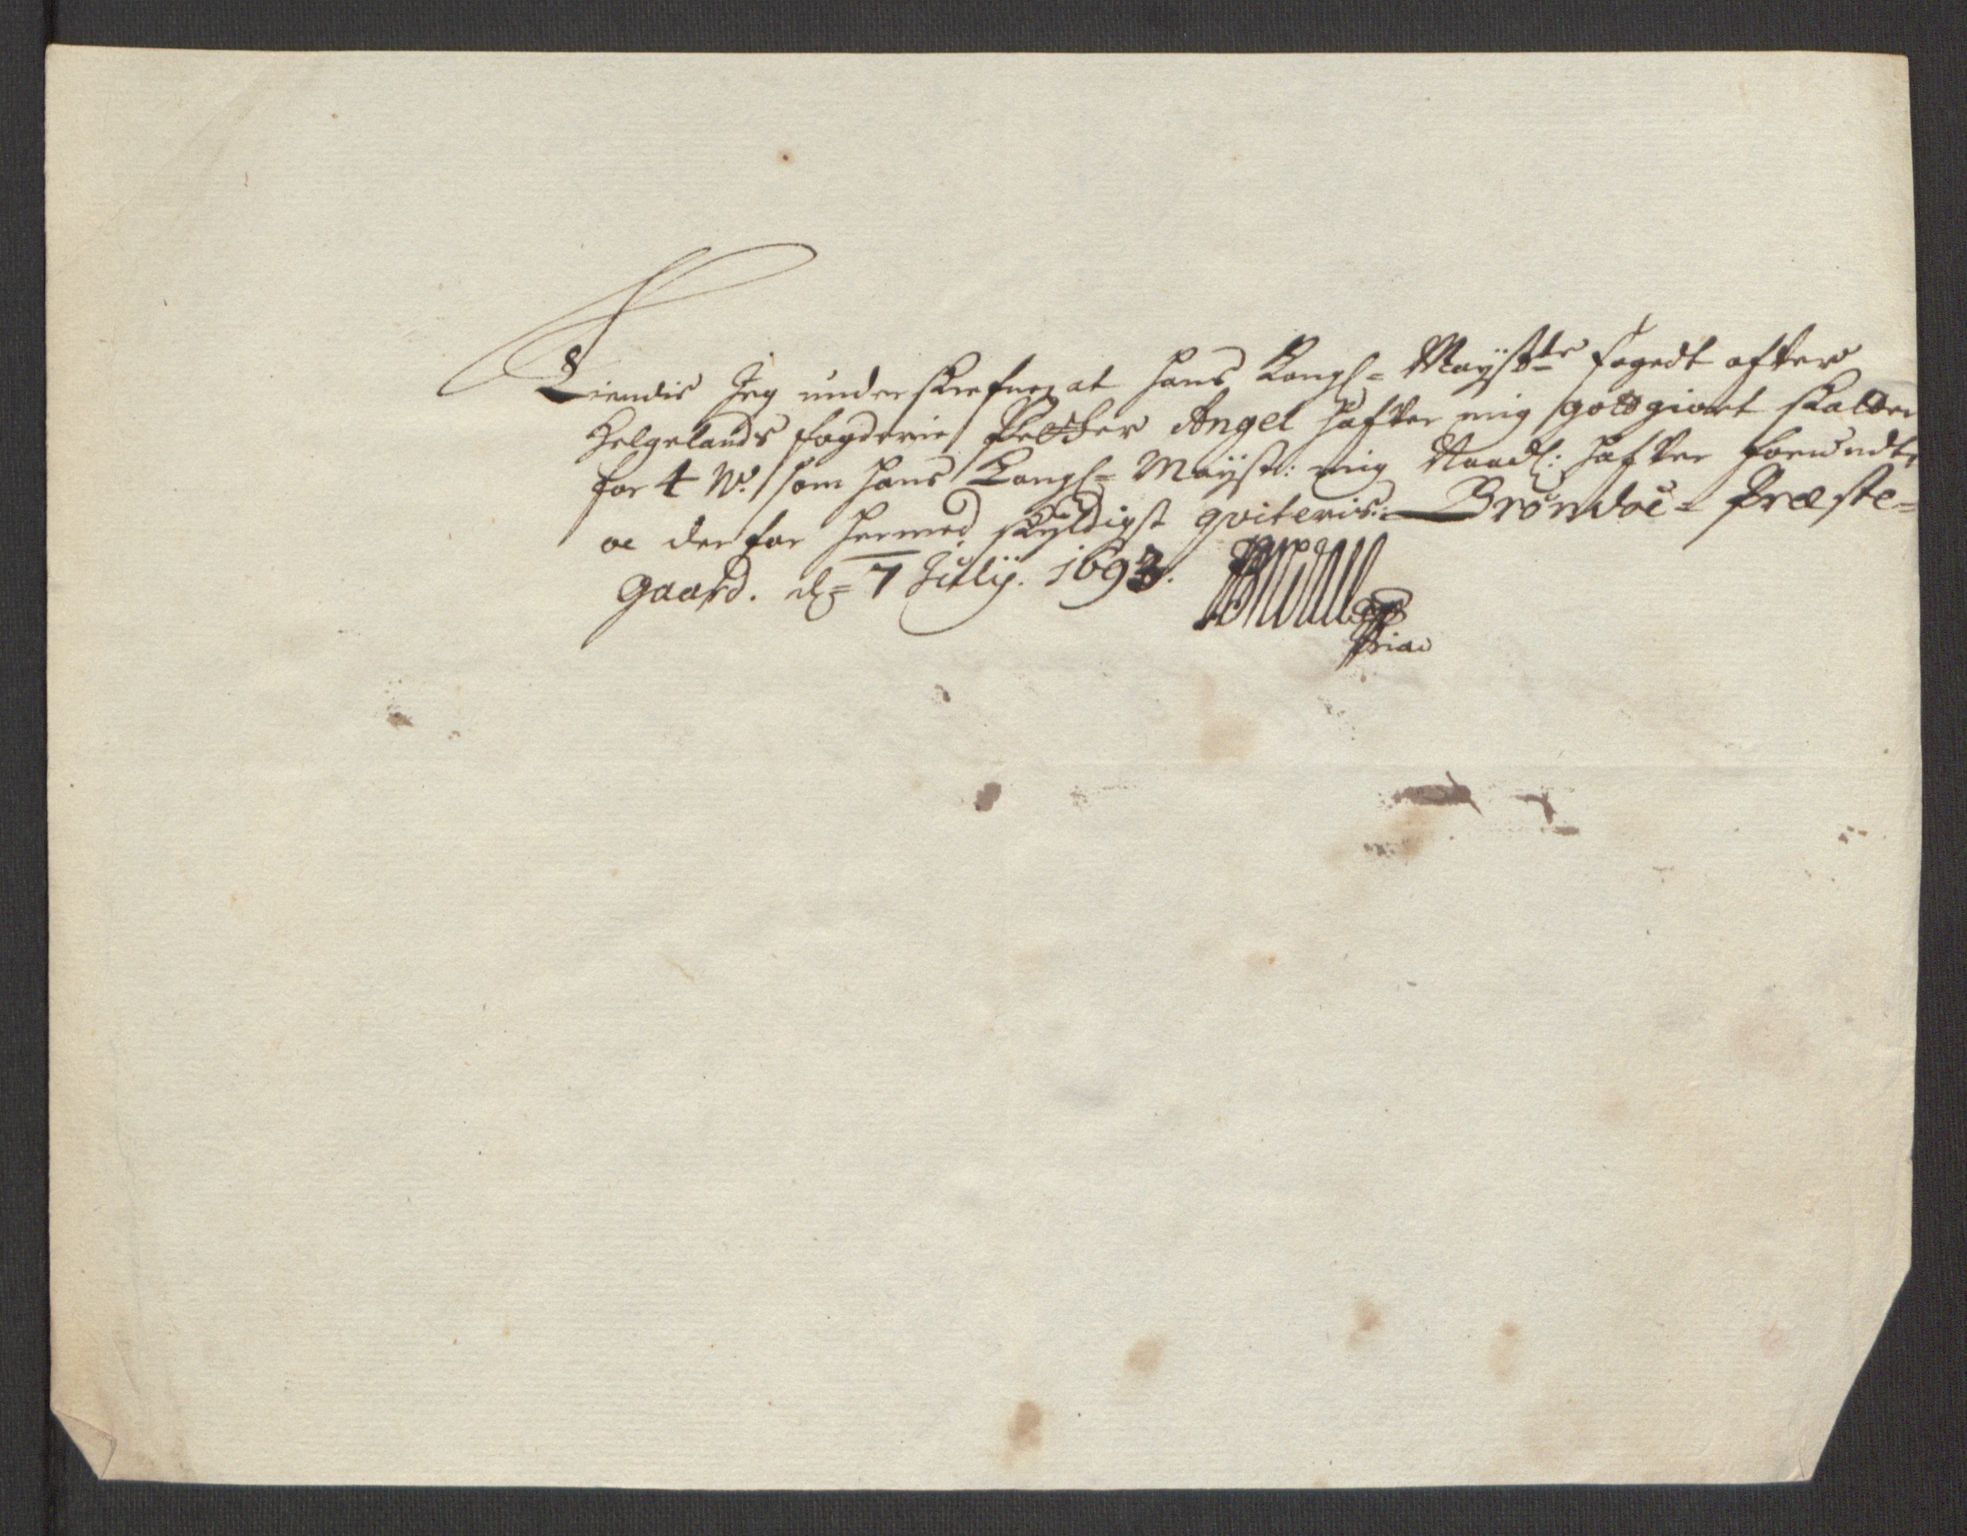 Kiendis Jeg underskrefne, at Hans Kongl= Maÿstts fogedt ofver
Helgelands fogderie Petter Angel hafver mig gottgiort skatten
for 4 W. som Hans Kongl= Maÿst: mig Naadl: hafver forundt,
oc derfor hermed skÿldigst qviteris: Brønøe= Præste=
gaard. d= 7 Julÿ. 1693.